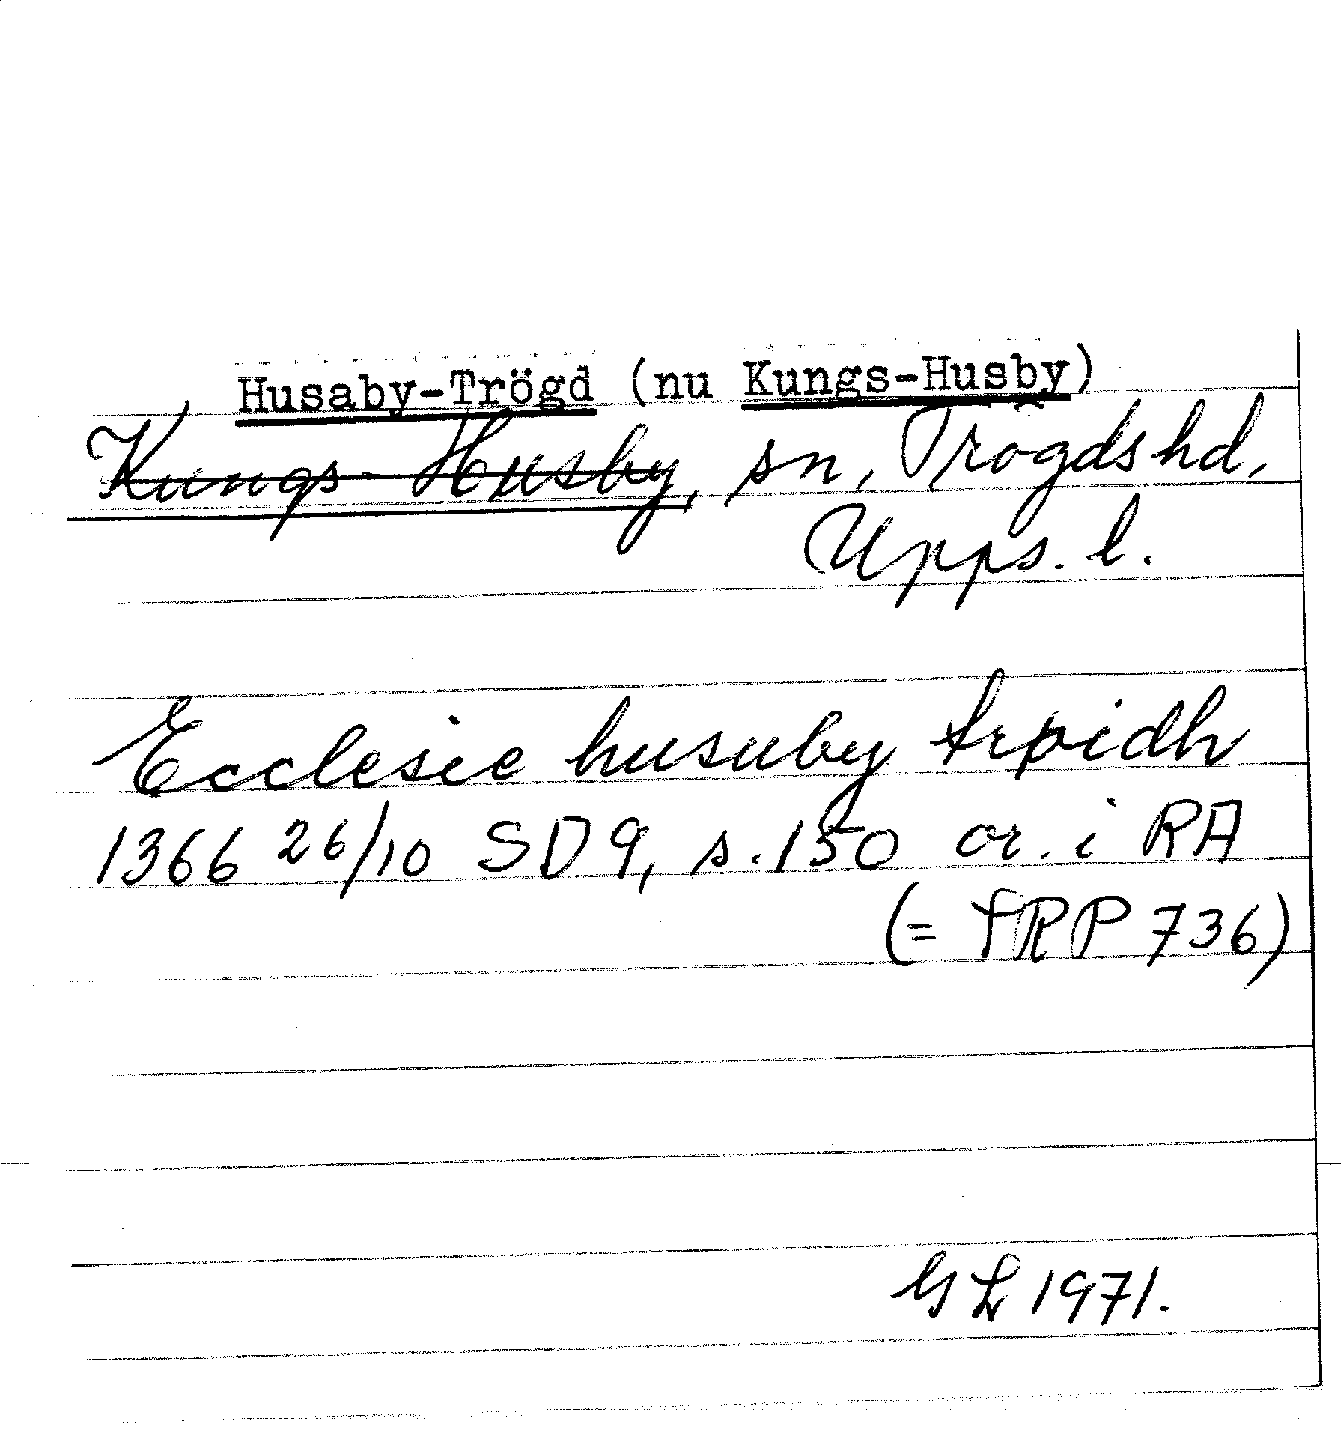 Husaby-Trögd (nu Kungs-Husby)
Kungs-Husby, sn, Trögds hd,
Upps. l.
Ecclesie husuby trøidh
1366 26/10 SD 9, s. 150 or. i RA
(= fRPP 736)
GL 1971.